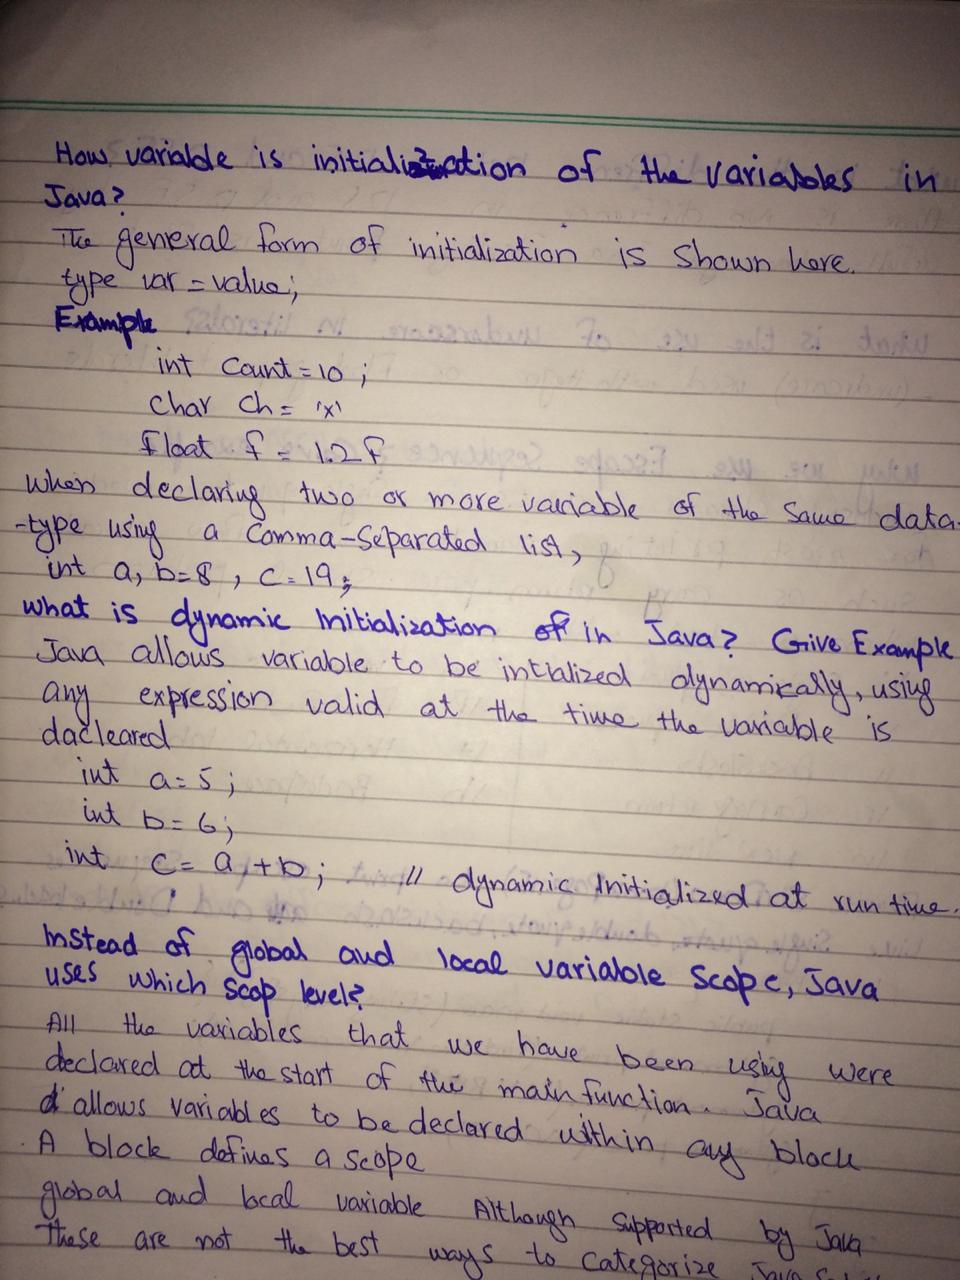 How variable is initialization of the variables in
Java?
The general form of initialization is shown here.
type var = value;
Example
int Count = 10 ;
Char Ch = 'x'
float f = 1.2f
when declaring two or more variable of the same data
-type using a Comma-Separated list,
int a, b=8 , c=19;
what is dynamic Initialization of in Java? Give Example
Java allows variable to be intialized dynamically, using
any expression valid at the time the variable is
dacleared
int a=5;
int b=6;
int c= a+b; // dynamic Initialized at run time.
Instead of global and local variable scope, Java
uses which scop level?
All the variables that we have been using were
declared at the start of the main function. Java
allows variables to be declared within any block
. A block defines a scope
global and local variable Although supported by Java
These are not the best ways to categorize Java